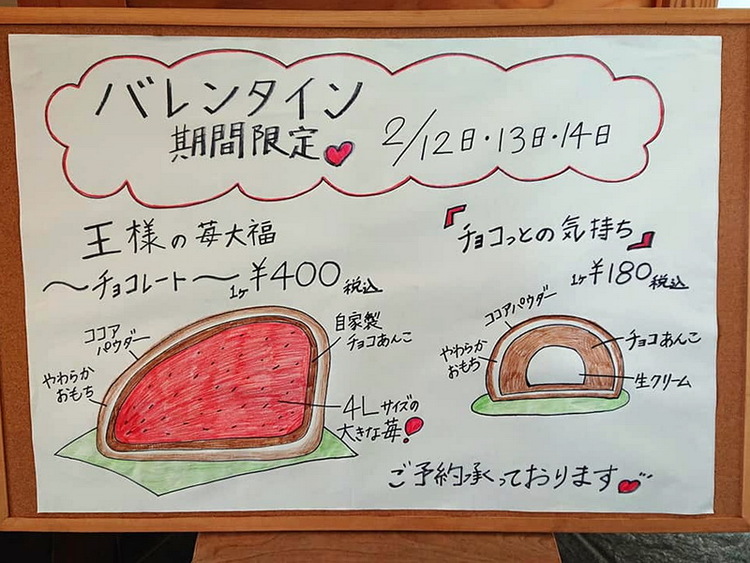 バレンタイン
期間限定
2/12日・13日・14日
王様の苺大福
〜チョコレート〜
1ヶ ¥400 税込
ココア
パウダー
やわらか
おもち
自家製
チョコあんこ
4Lサイズの
大きな苺!
『チョコっとの気持ち』
1ヶ ¥180 税込
ココアパウダー
やわらか
おもち
チョコあんこ
生クリーム
ご予約承っております